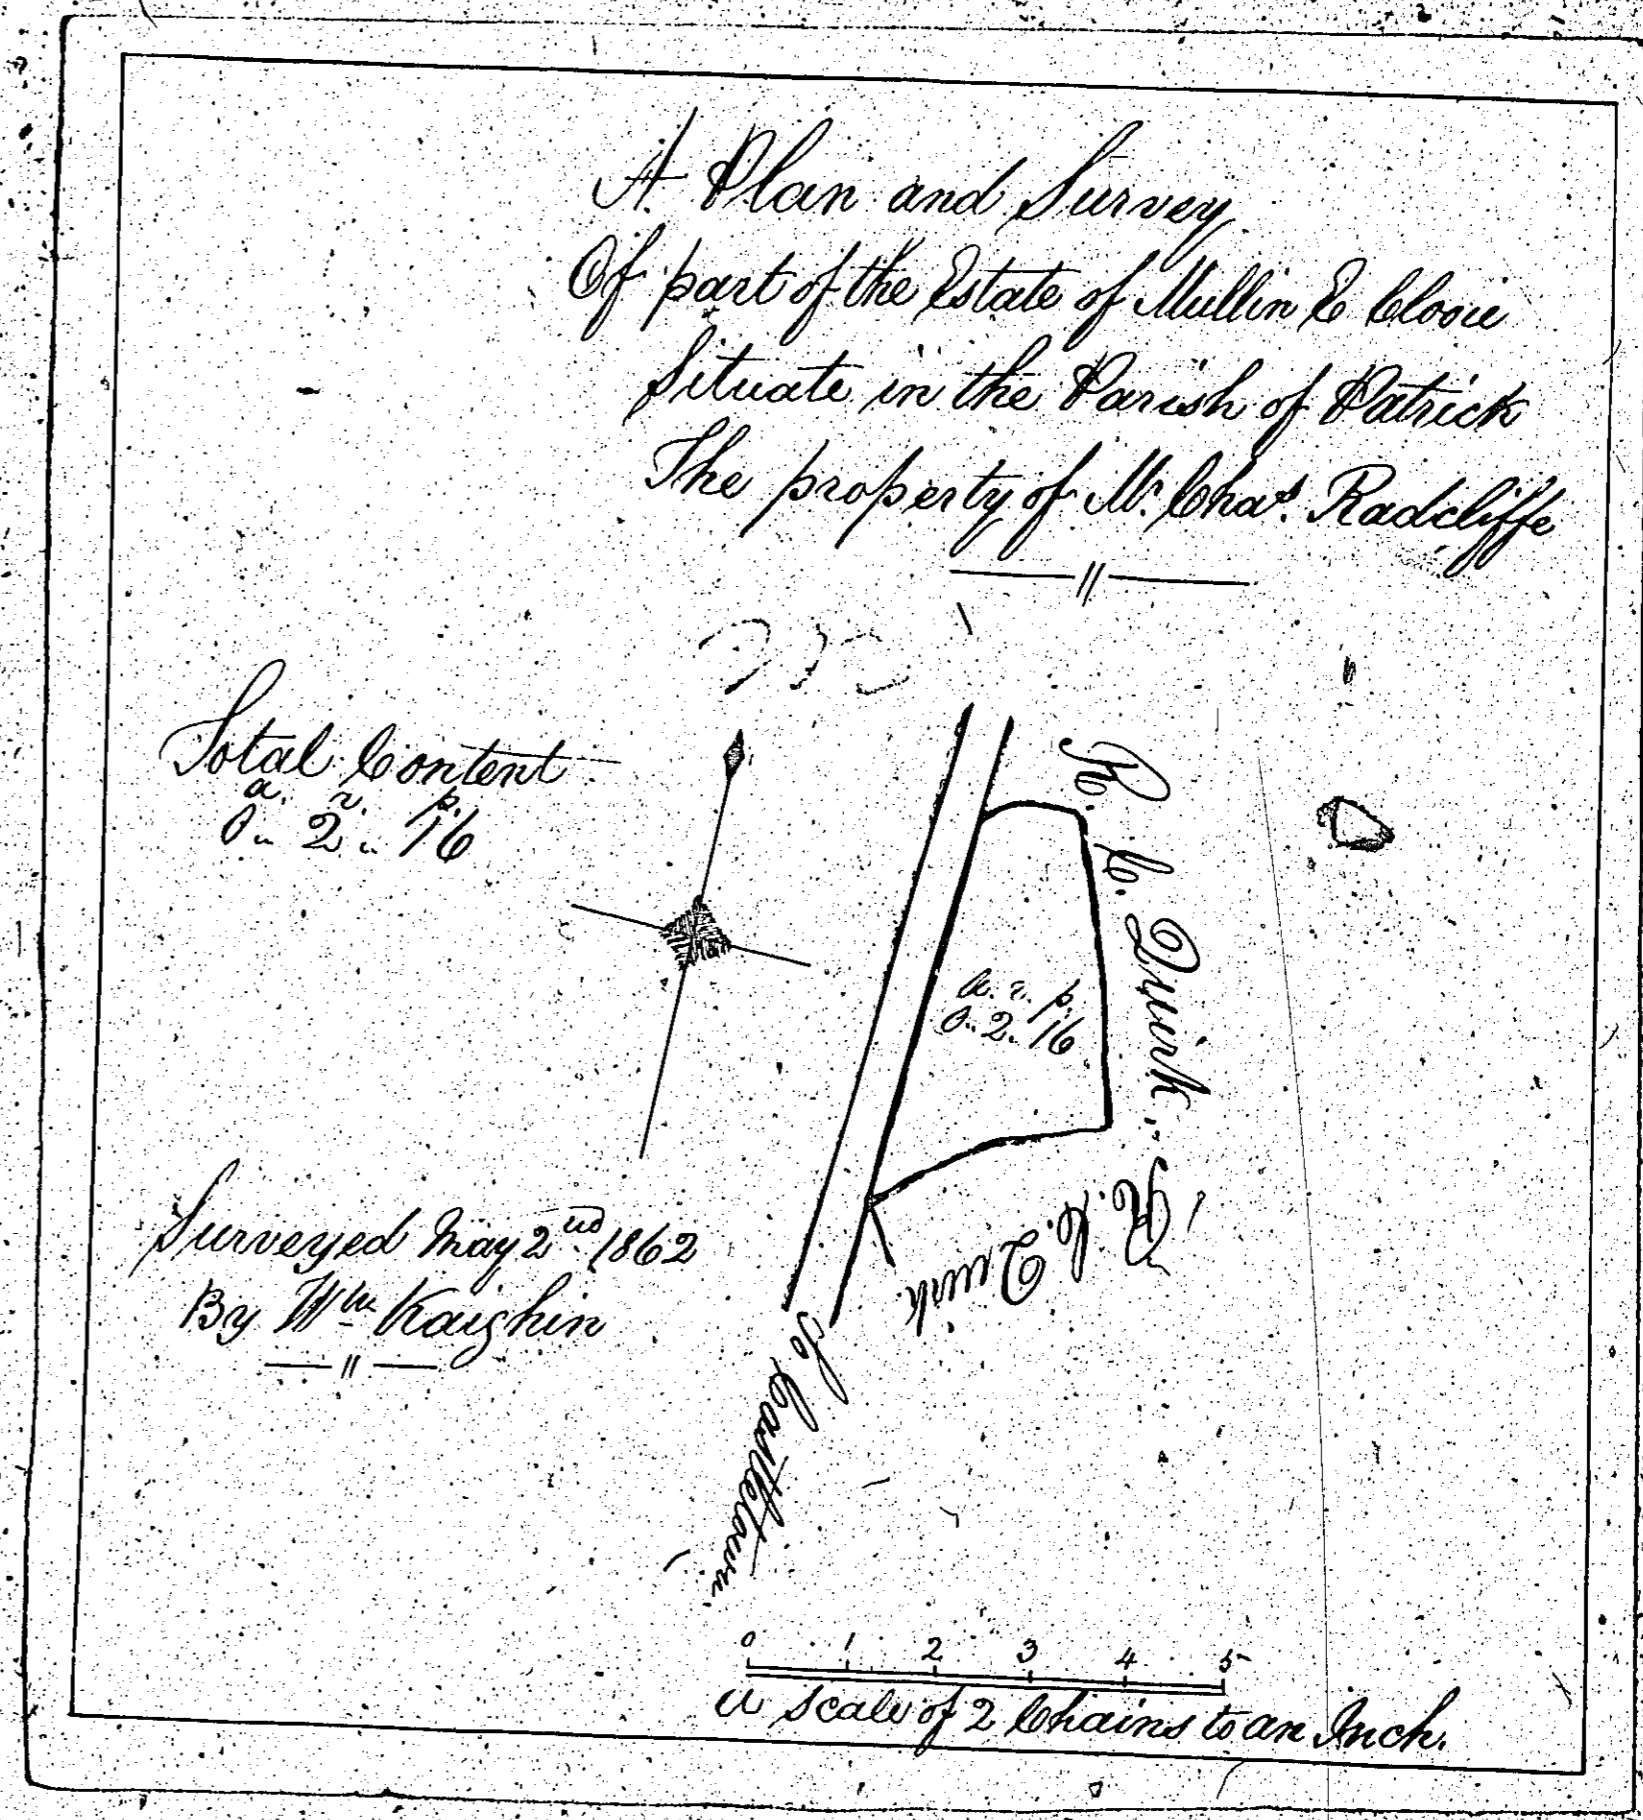 A Plan and Survey
Of part of the Estate of Mullin E Clovie
Situate in the Parish of Patrick
The property of Mr. Chas. Radcliffe
Total Content
a. r. p.
0 .. 2 .. 16
R. C. Quirk
a. r. p.
0 .. 2 .. 16
R. C. Quirk
Surveyed May 2nd 1862
By Wm Kaighin
To Castletown
0 1 2 3 4 5
a scale of 2 Chains to an Inch.